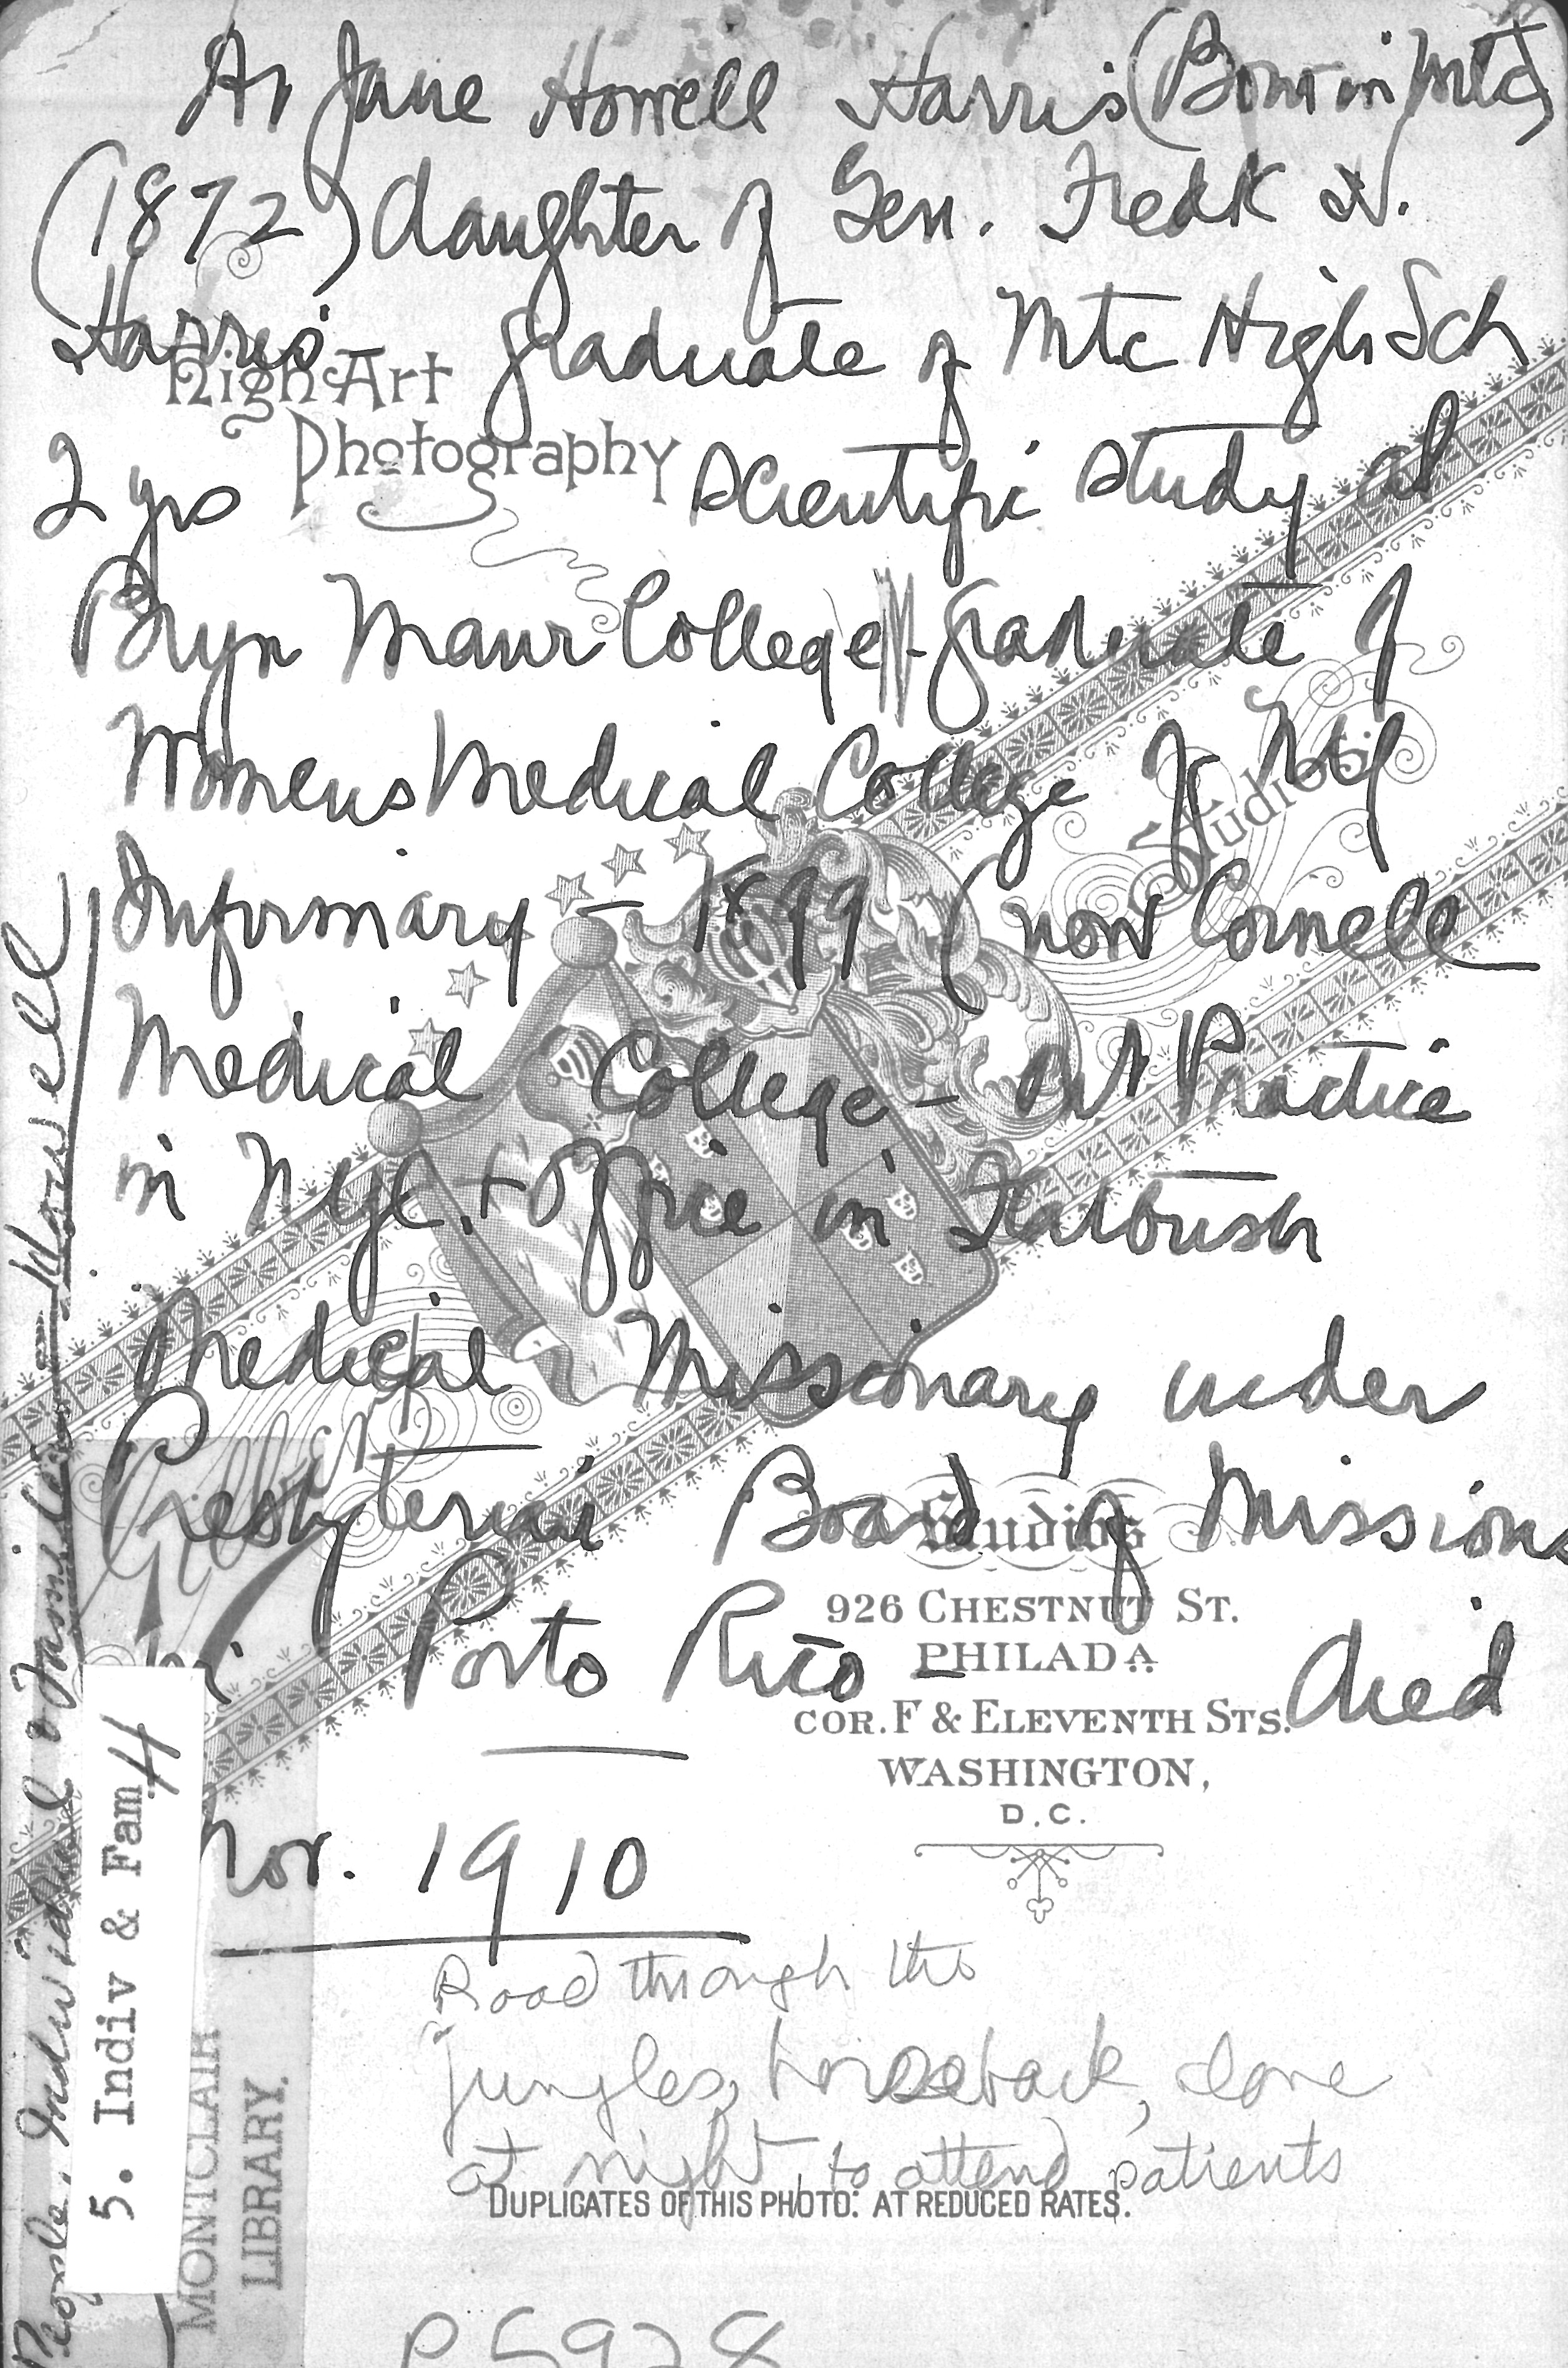 Dr Jane Howell Harris (Born in Mtc)
(1872) daughter of Gen. Fredk H.
Harris graduate of Mtc High Sch
High Art
Photography
2 yrs scientific study at
Bryn Mawr College - graduate of
Womens Medical College of NY
Studios
Infirmary - 1899 (now Cornell
Medical College - Practice
in NYC. + Office in Flatbush
Medical Missionary under
Gilbert
Presbyterian Board of Missions
Studios
926 CHESTNUT ST.
in Porto Rico - died
PHILADA
COR. F & ELEVENTH STS.
WASHINGTON,
D.C.
Nov. 1910
Road through the
jungles, horseback, alone
at night, to attend patients
DUPLICATES OF THIS PHOTO. AT REDUCED RATES.
P5978
People, Individual & Families - Howell
5. Indiv & Fam H
MONTCLAIR
LIBRARY.